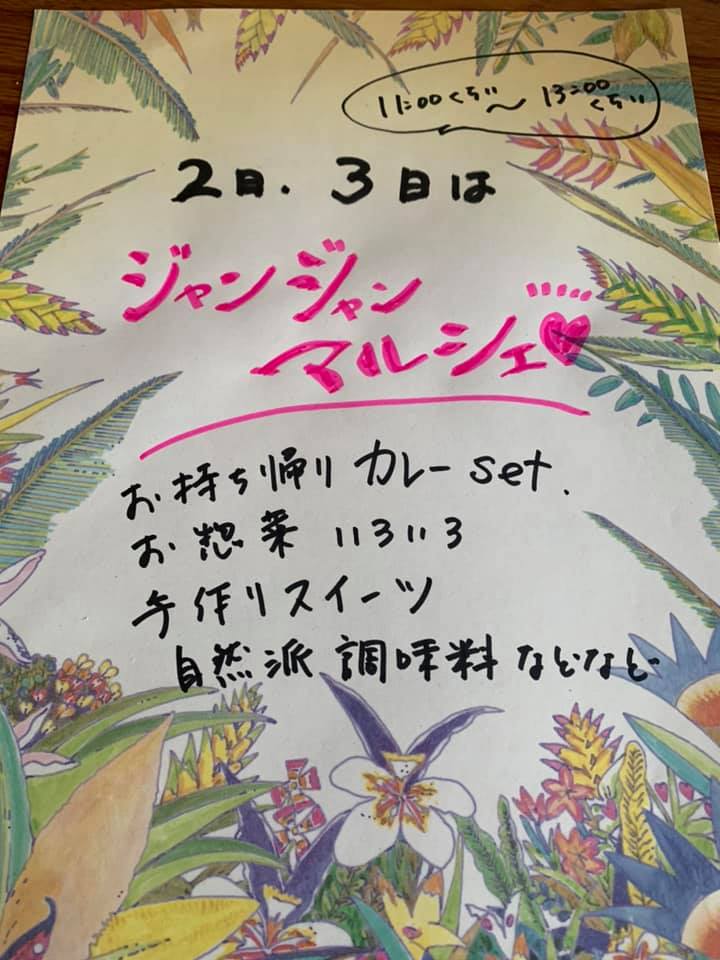 11:00くらい〜13:00くらい
2日.3日は
ジャンジャン
マルシェ
お持ち帰りカレーset.
お惣菜いろいろ
手作りスイーツ
自然派調味料などなど